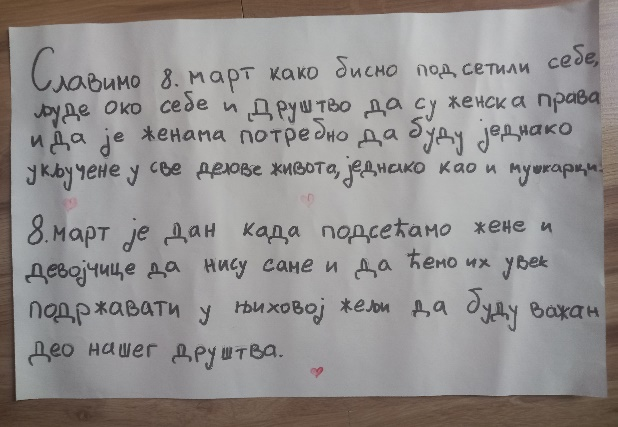 Славимо 8. март како бисмо подсетили себе,
људе око себе и друштво да су женска права
и да је женама потребно да буду једнако
укључене у све делове живота, једнако као и мушкарци.
8. март је дан када подсећамо жене и
девојчице да нису саме и да ћемо их увек
подржавати у њиховој жељи да буду важан
део нашег друштва.